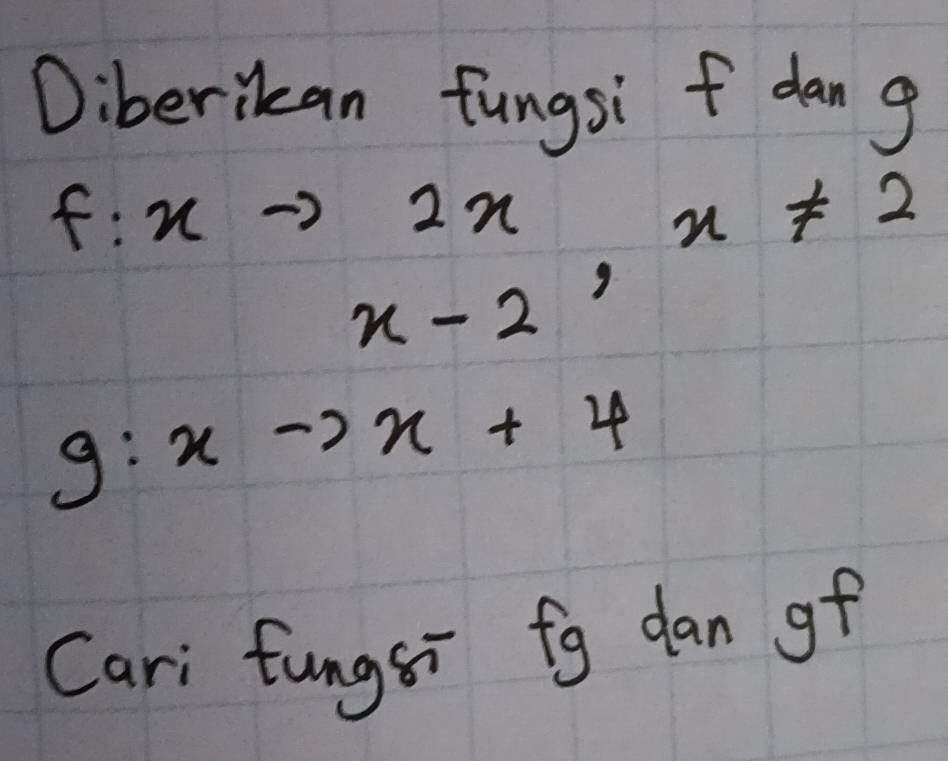 Diberikan fungsi f dan g
f : x → 2x x ≠ 2
x - 2 ,
g : x → x + 4
Cari fungsi fg dan gf